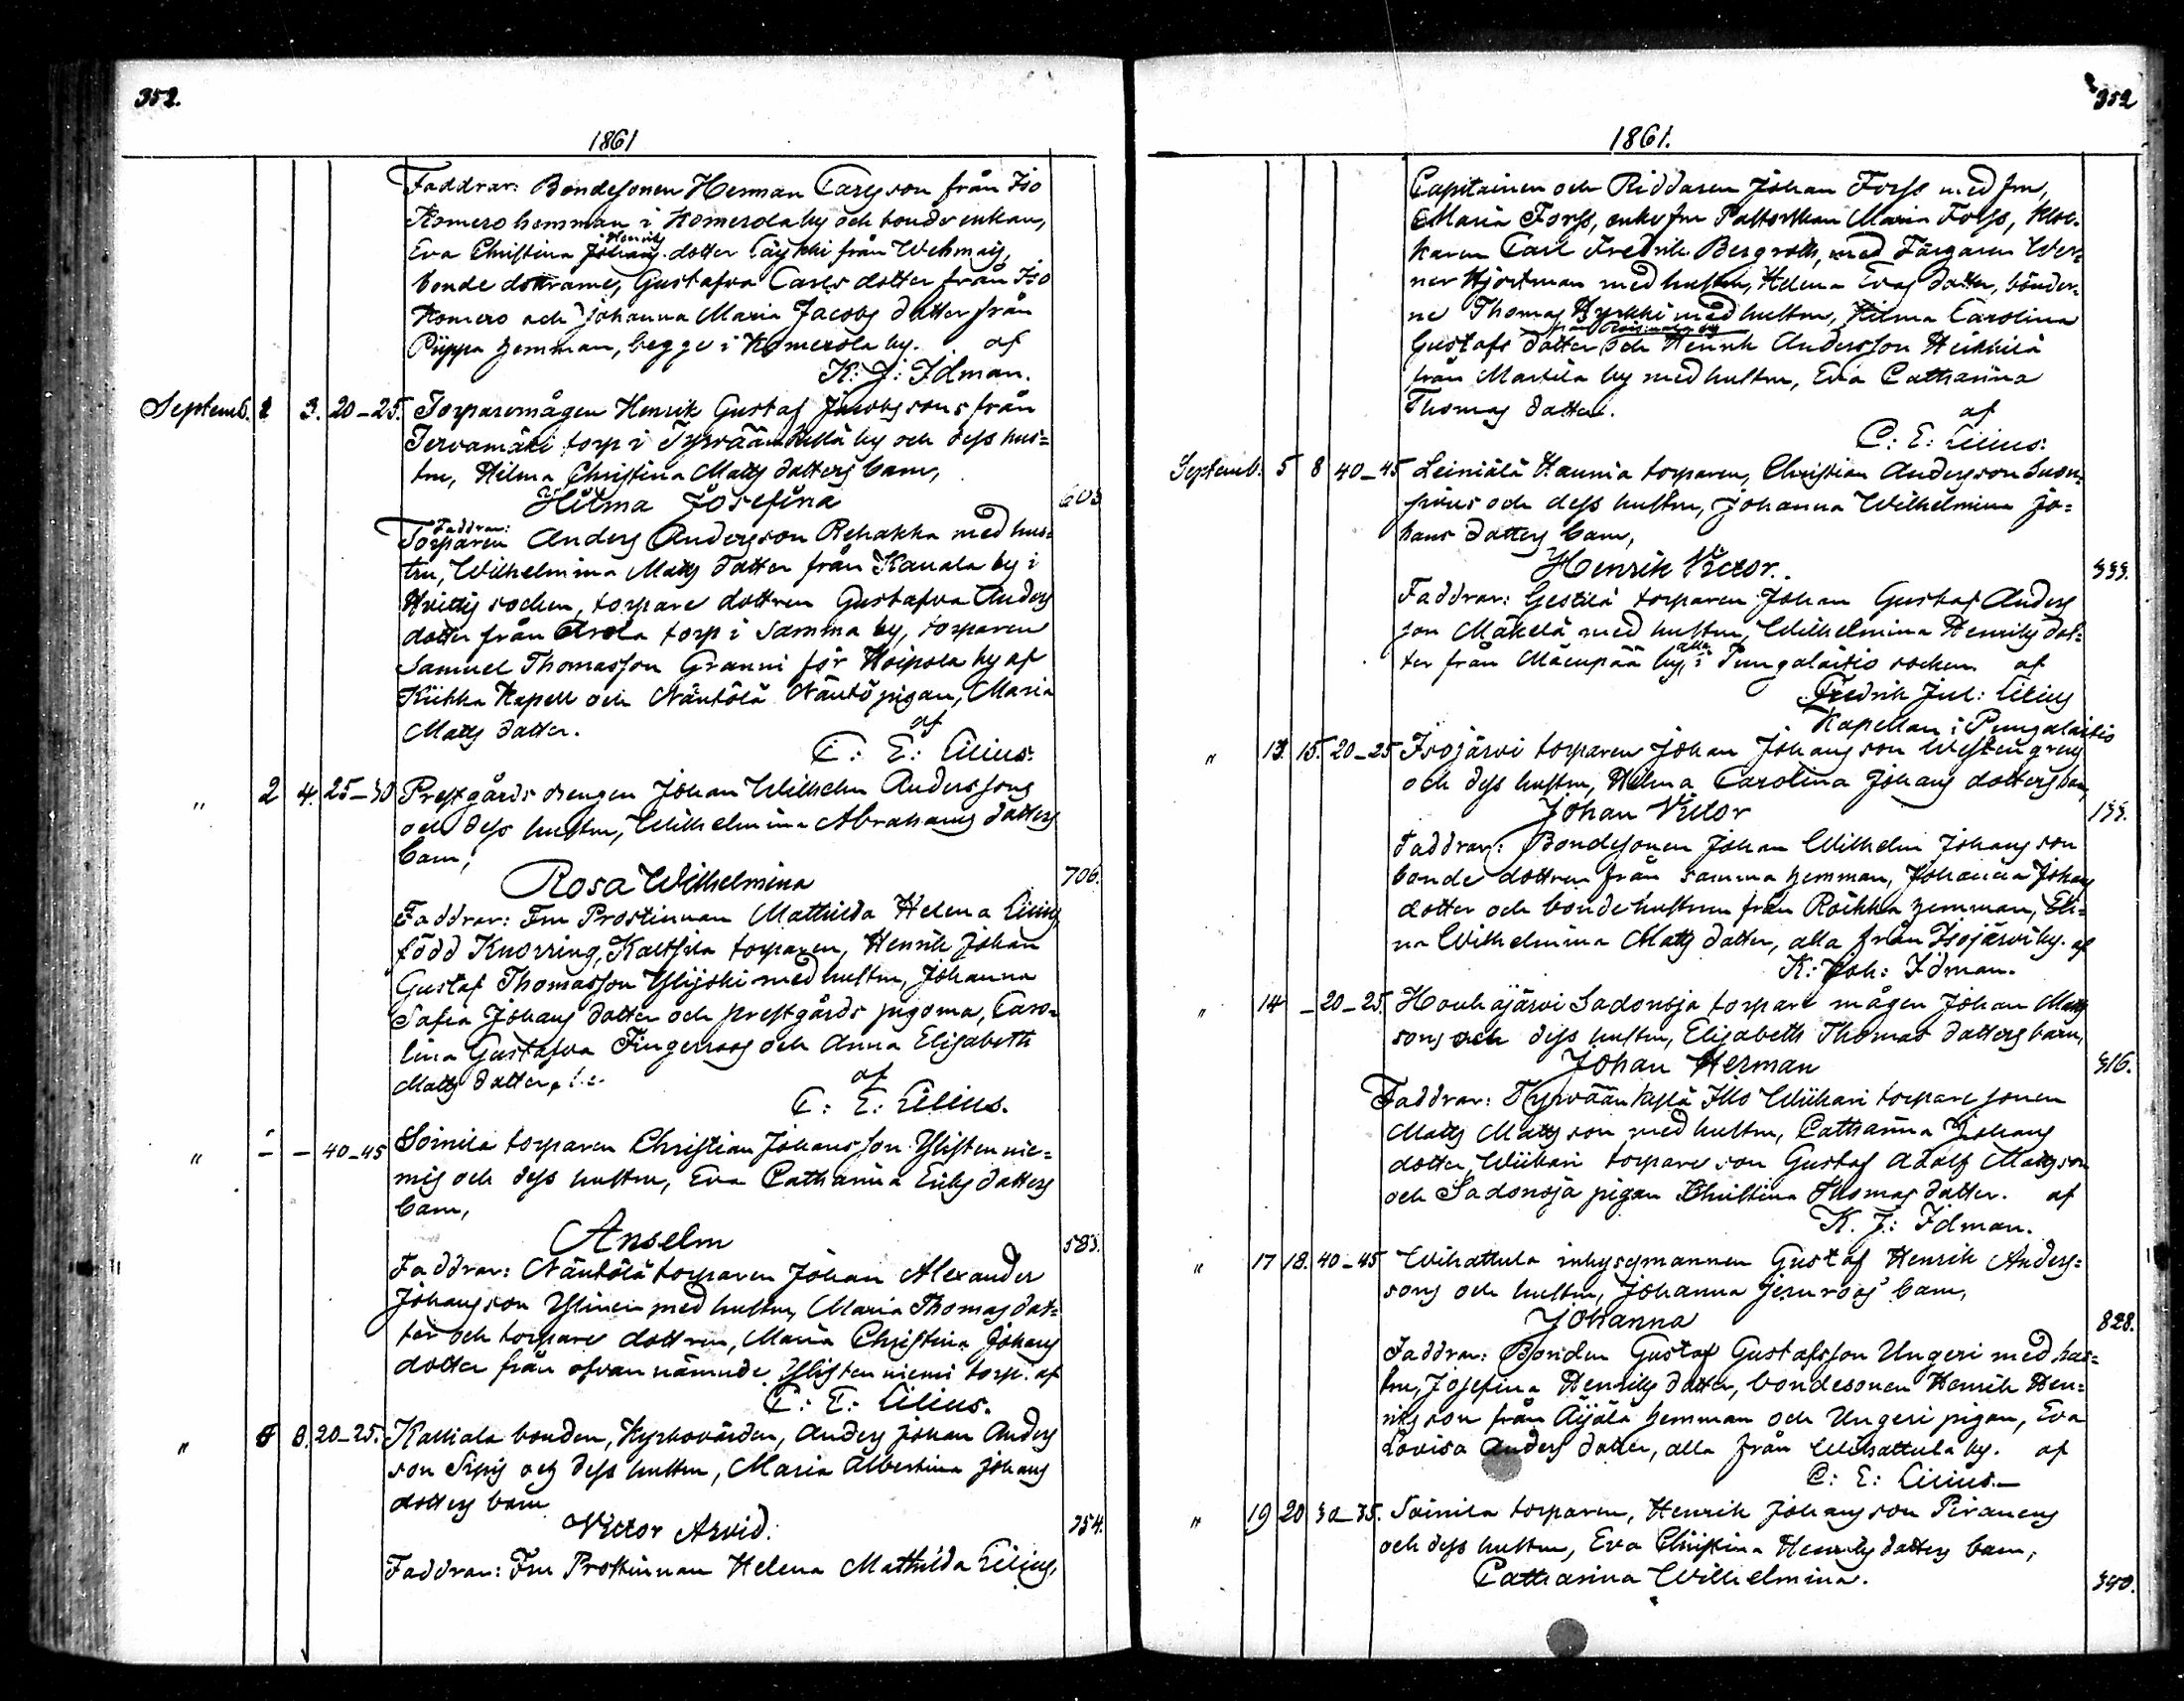 352.
1861
Faddrar: Bondesonen Herman Carlsson från Iso
Komero hemman i Komerola by och bonde enkan,
Henriks
Eva Christina Johans dotter Cäykki från Wehmais,
bonde dottrarne, Gustafva Carls dotter från Iso
Komero och Johanna Maria Jacobs dotter från
Piippa hemman, begge i Komerola by. af
K: J: Idman.
Septemb. 1 3. 20-25. Torparemågen Henrik Gustaf Jacobssons från
Tervamäki torp i Tyrväänkylä by och dess hus=
tru, Hilma Christina Matts dotters barn,
Hilma Josefina 603
Faddrar:
Torparen Anders Andersson Rehakka med hus=
tru, Wilhelmina Matts dotter från Kauala by i
Hvittis socken, torpare dottren Gustafva Anders
dotter från Arola torp i samma by, torparen
Samuel Thomasson Granni för Hoipola by af
Kiikka Kapell och Näntölä Näntö pigan, Maria
Matts dotter. af
C: E: Cilius.
" 2 4. 25-30 Prestgårds drengen Johan Wilhelm Anderssons
och dess hustru, Wilhelmina Abrahams dotters
barn,
Rosa Wilhelmina 706.
Faddrar: Fru Prostinnan Mathilda Helena Cilius,
född Knorring, Kaltsila torparen, Henrik Johan
Gustaf Thomasson Ylijoki med hustru, Johanna
Safia Johans dotter och prestgårds pigorna, Caro=
lina Gustafva Fingerroos och Anna Elisabeth
Matts dotter. af
C: E: Cilius.
" - - 40-45 Soinila torparen Christian Johansson Ylistennie=
mis och dess hustru, Eva Catharina Eriks dotters
barn,
Anselm 583.
Faddrar: Näntölä torparen Johan Alexander
Johansson Ylinen med hustru, Maria Thomas dot=
ter och torpare dottren, Maria Christina Johans
dotter från ofvannämnde Ylistenniemi torp. af
C: E: Cilius.
" 5 8. 20-25. Kalliala bonden, Kyrkovärden, Anders Johan Anders
son Sipis och dess hustru, Maria Albertina Johans
dotters barn
Victor Arvid. 754.
Faddrar: Fru Prostinnan Helena Mathilda Cilius,
352
1861.
Capitainen och Riddaren Johan Forss med fru,
Maria Forss, enkefru Pastorskan Maria Forss, kloc=
karen Carl Fredrik Bergroth, med Färgaren Wer=
ner Hjortman med hustru, Helena Evas dotter, bönder=
ne Thomas Hyrkki med hustru, Hilma Carolina
från Roismala by
Gustafs dotter och Henrik Andersson Heikkilä
från Martila by med hustru, Eva Catharina
Thomas dotter. af
C: E: Cilius.
Septemb. 5 8 40-45 Leiniälä Haunia torparen, Christian Andersson Suon=
pääs och dess hustru, Johanna Wilhelmina Jo=
hans dotters barn,
Henrik Victor. 333.
Faddrar: Gestilä torparen Johan Gustaf Anders
son Mäkelä med hustru, Wilhelmina Henriks dot=
alla
ter från Mäenpää by, i Pungalaitio socken. af
Fredrik Jul: Cilius
Kapellan i Pungalaitio
" 13. 15. 20-25 Isojärvi torparen Johan Johansson Westengrens
och dess hustru, Helena Carolina Johans dotters barn,
Johan Victor 133.
Faddrar: Bondesonen Johan Wilhelm Johansson
bonde dottren från samma hemman, Johanna Johans
dotter och bondehustrun från Röikkä hemman, Eli=
na Wilhelmina Matts dotter, alla från Isojärvi by. af
K: Joh: Idman.
" 14 - 20-25. Houhajärvi Sadonoja torpare mågen Johan Matts
sons och dess hustru, Elisabeth Thomas dotters barn,
Johan Herman 316.
Faddrar: Tyrväänkylä Illo Wiikari torpare sonen
Matts Mattsson med hustru, Catharina Johans
dotter, Wiikari torpare son Gustaf Adolf Mattsson
och Sadonoja pigan Christina Thomas dotter. af
K. J: Idman.
" 17 18. 40-45 Wihattula inhysesmannen Gustaf Henrik Anders=
sons och hustru, Johanna Jernroos' barn,
Johanna 828.
Faddrar: Bonden Gustaf Gustafsson Ungeri med hus=
tru, Josefina Henriks dotter, bondesonen Henrik Hen=
riksson från Äijälä hemman och Ungeri pigan, Eva
Lovisa Anders dotter, alla från Wihattula by. af
C: E: Cilius.-
" 19 20 30-35. Soinila torparen, Henrik Johansson Piranens
och dess hustru, Eva Christina Henriks dotters barn,
Catharina Wilhelmina. 340.